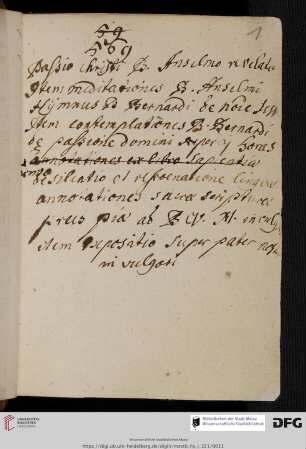 59
569
1
Passio Christi B. Anselmo revelata
Item meditationes B. Anselmi
Hymnus B Bernardi de
Item contemplationes B Bernardi
de passione domini super 7 horas
annotationes ex libro sapientiae
de silentio et refrenatione linguae
annotationes sacrae scripturae
preces piae ab
item expositio super pater
in vulgari
UNIVERSITÄTS-
BIBLIOTHEK
HEIDELBERG
Bibliotheken der Stadt Mainz
Wissenschaftliche Stadtbibliothek
DFG
Wissenschaftliche Stadtbibliothek Mainz